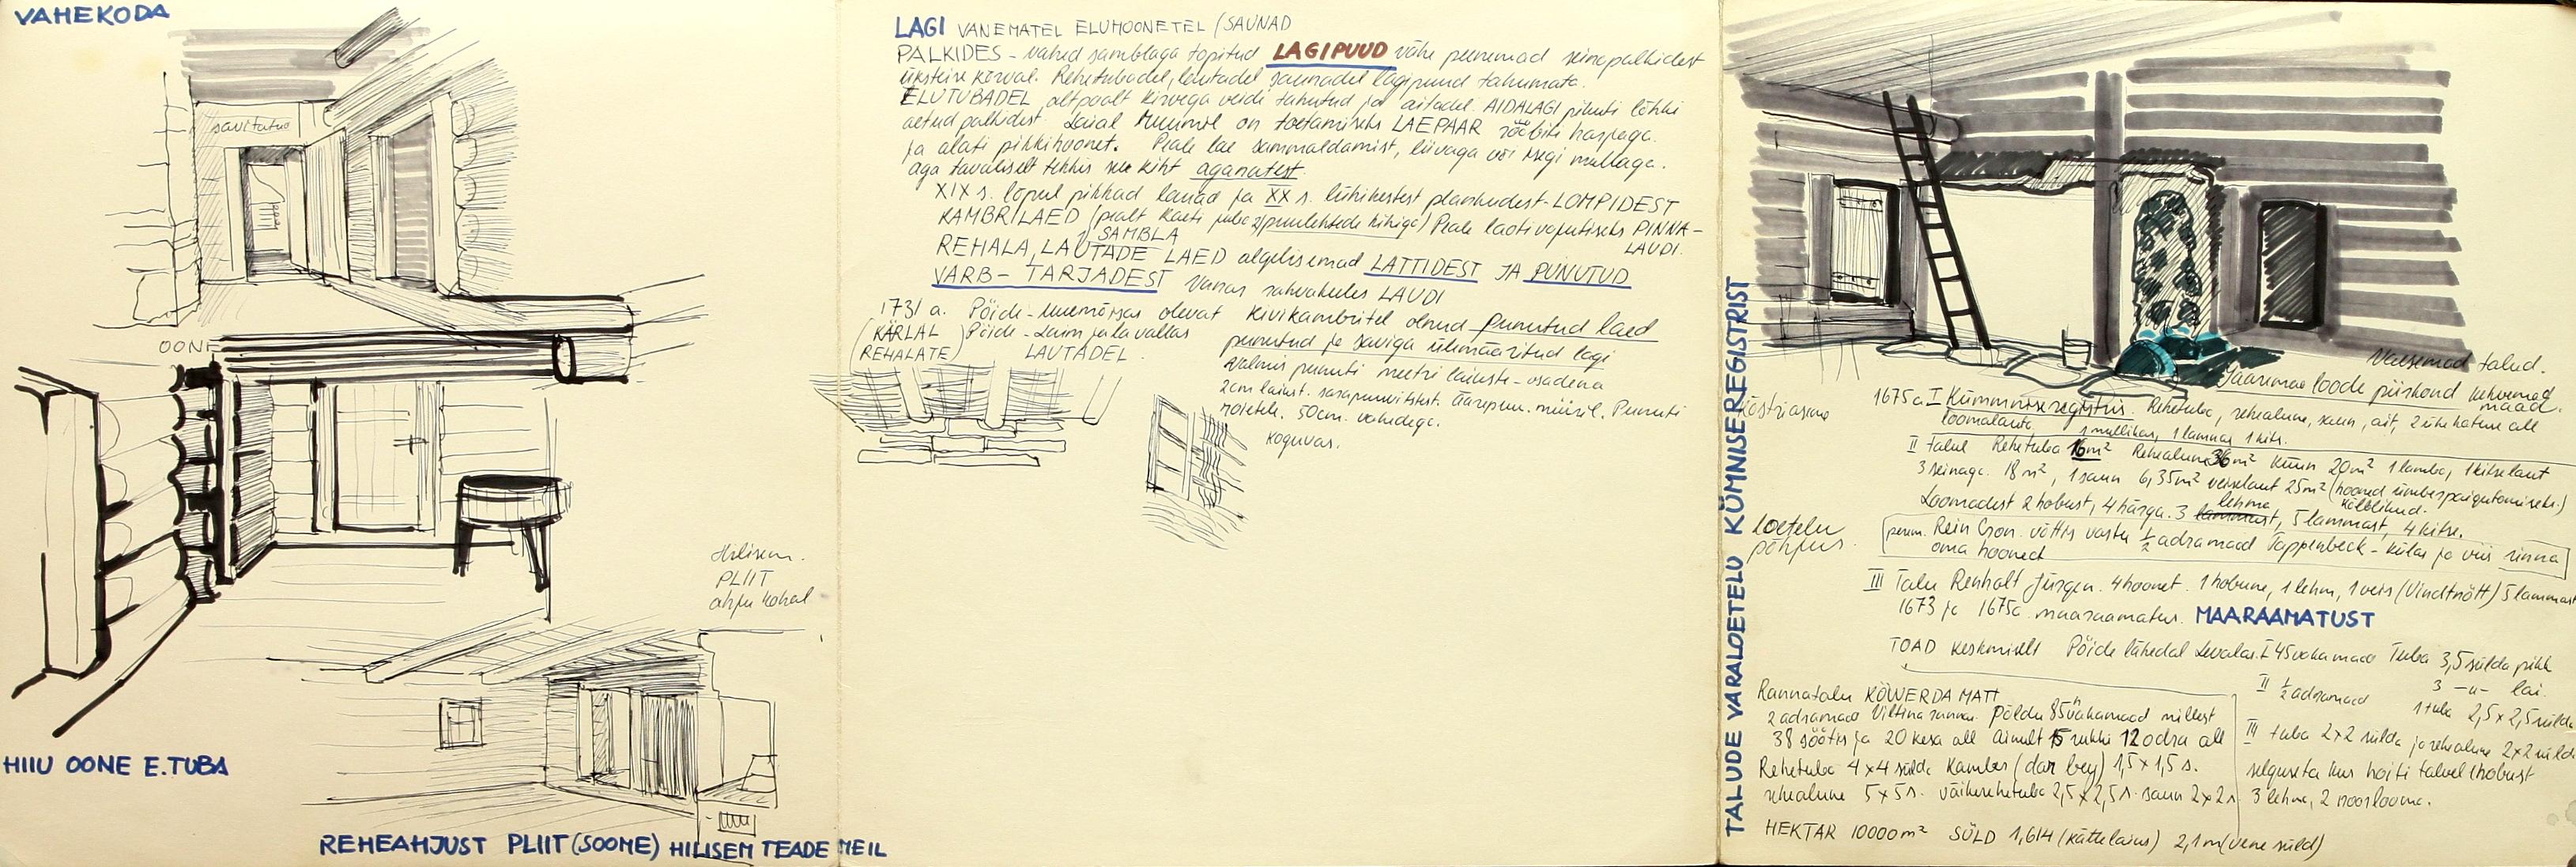 VAHEKODA
savitatud
OONE
Hilisem.
PLIIT
ahju kohal
HIIU OONE E.TUBA
REHEAHJUST PLIIT (SOOME) HILISEM TEADE MEIL
LAGI VANEMATEL ELUHOONETEL (SAUNAD
PALKIDES - vahed samblaga topitud LAGIPUUD vähe peenemad seinapalkidest
üksteise kõrval. Rehetubadel, lautadel saunadel lagipuud tahumata.
ELUTUBADEL altpoolt kirvega veidi tahutud ja aitadel. AIDALAGI pihuti lõhki
aetud palkidest. Laial ruumil on toetamiseks LAEPAAR rööbiti harjaga.
ja alati pikkihoonet. Peale lae sammaldamist, liivaga või isegi mullaga.
aga tavaliselt tehtis see kiht aganatest.
XIX s. lõpul pikkad lauad ja XX s. lühikestest plankudest - LOMPIDEST
KAMBRILAED (pealt kaeti juba puulehtede kihiga) Peale laoti vajutiseks PINNA-
LAUDI.
SAMBLA
REHALA, LAUTADE LAED algelisemad LATTIDEST JA PUNUTUD
VARB - TARJADEST vanas rahvakeeles LAUDI
1731 a. Pöide - Uuemõisas olevat kivikambritel olnud punutud laed
(KÄRLAL Pöide - Laimjala vallas punutud ja saviga ülemääritud lagi
REHALATE) LAUTADEL.
Valmis punuti meetri laiuste - osadena
2cm laiust. sarapuuvitstest. Äärepuu. müüril. Punuti
roietele. 50cm. vahedega.
koguvas.
TALUDE VARALOETELU KÜMNISEREGISTRIST
Vaesemad talud.
Saaremaa loode piirkond kehvemad
maad.
Köstriasema
1675a I Kümniseregistris. Rehetuba, rehealune, saun, ait, 2 ühe katuse all
loomalauta. 1 mullikas, 1 lammas 1 kits.
II talul Rehetuba 16m² Rehealune 36m² Küün 20m² 1 lamba, 1 kitselaut
3 seinaga. 18 m², 1 saun 6,35m² veiselaut 25m² (hooned ümberpaigutamiseks.)
kõlblikud.
Loomadest 2 hobust, 4 härga. 3 lehma, 5 lammast, 4 kitse.
Loetelu
põhjus.
perem. Rein Gron. võttis vastu 1/2 adramaad Tappenbeck - külas ja viis sinna
oma hooned
III Talu Renholt Jürgen. 4 hoonet. 1 hobune, 1 lehm, 1 veis (Vindtnött) 5 lammast
1673 ja 1675a. maaraamatus. MAARAAMATUST
TOAD keskmiselt Pöide lähedal Levalas. I 45 vakamaad Tuba 3,5 sülda pikk
3 -"- lai.
II 1/2 adramaad 1 tuba 2,5 x 2,5 sülda
III tuba 2x2 sülda ja rehealune 2x2 sülda
selguseta kus hoiti talvel 1 hobust
3 lehma, 2 noorlooma.
Rannatalu KÖWERDA MATT
2 adramaad Viltina rannas. Põldu 85 vakamaad millest
38 söötis ja 20 kesa all ainult 15 rukki 12 odra all
Rehetuba 4x4 sülda Kamber (dar bey) 1,5 x 1,5 s.
rehealune 5x5 s. väikerehetuba 2,5 x 2,5 s. saun 2x2 s.
HEKTAR 10000m² SÜLD 1,614 (kättelaius) 2,1 m (vene süld)